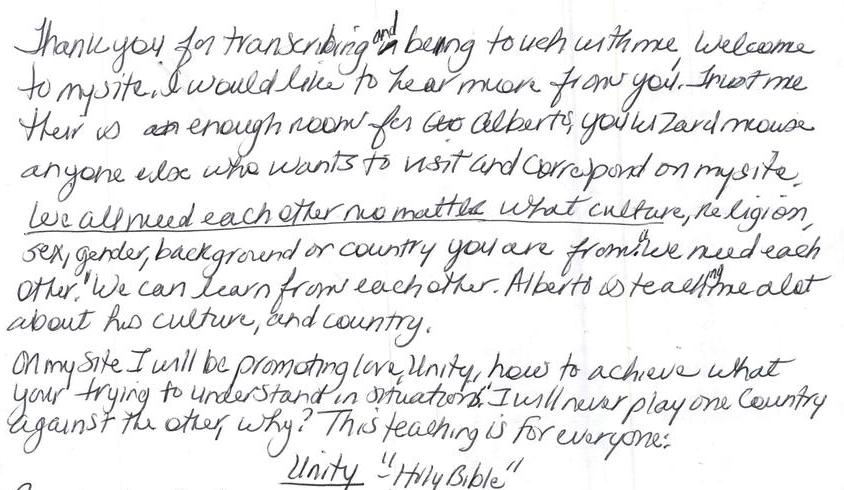 Thank you for transcribing and being touch with me, Welcome
to my site. I would like to hear more from you. Trust me
their is enough room for Alberto, you wizard mouse
anyone else who wants to visit and correspond on my site.
We all need each other no matter what culture, religion,
sex, gender, background or country you are from. "We need each
other." We can learn from each other. Alberto is teaching me alot
about his culture, and country.
On my site I will be promoting love, Unity, how to achieve what
your trying to understand in situations." I will never play one Country
against the other, why? This teaching is for everyone:
Unity - "Holy Bible"